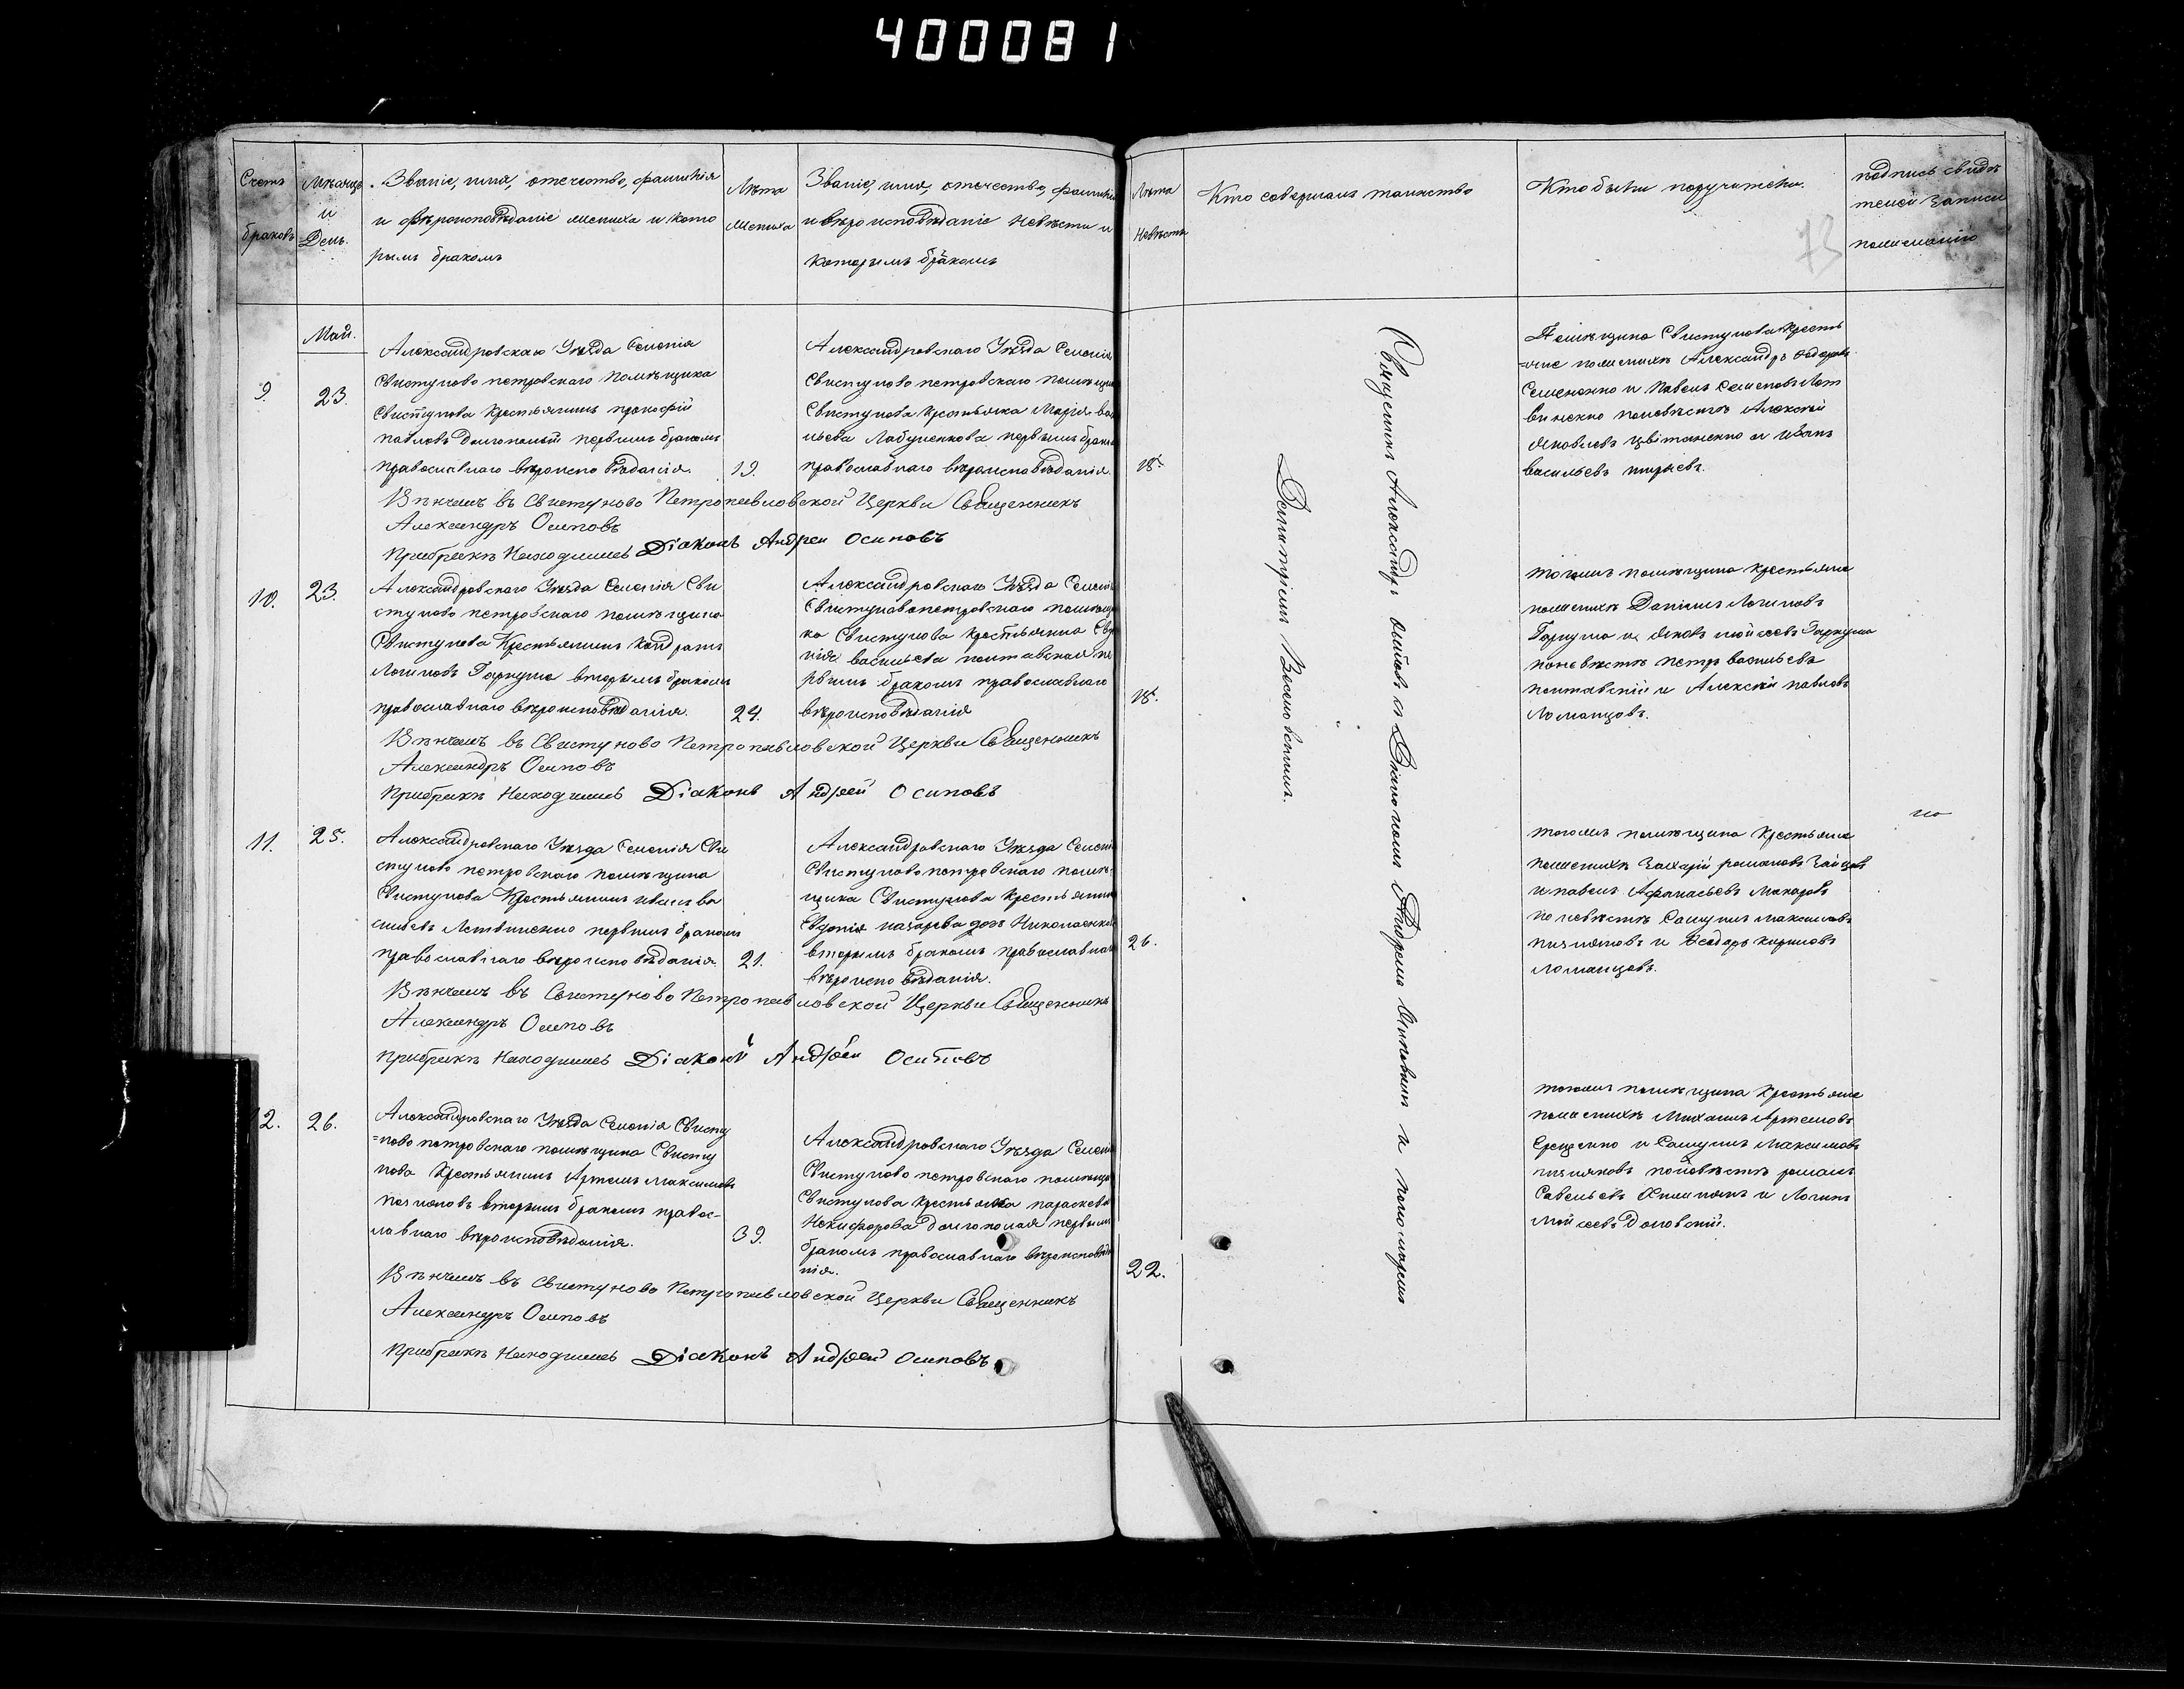 400081
Счетъ браковъ
Мѣсяцъ и День.
Званіе, имя, отечество, фамилія
и вѣроисповѣданіе жениха и кото
рымъ бракомъ
Лѣта жениха
Званіе, имя, отечество, фамилія
и вѣроисповѣданіе невѣсты и
которымъ бракомъ
Лѣта невѣсты
Кто совершалъ таинство
Кто были поручители.
73
подпись свидѣ
телей записи
по желанію
Май.
9.
23.
Александровскаго Уѣзда Селенія
Свистуново петровскаго помѣщика
Свистунова Крестьянинъ прокофій
павловъ Долгополый первымъ бракомъ
православнаго вѣроисповѣданія.
19.
Александровскаго Уѣзда Селенія
Свистуново петровскаго помѣщи
Свистунова крестьянка Марія ва
ильева Лабушенкова первымъ брако
православнаго вѣроисповѣданія.
18.
Помѣщика Свистунова Кресть
=яне по женихѣ Александръ Федоровъ
Семененко и павелъ Семеновъ Лит
виненко по невѣстѣ Алексѣй
Яковлевъ Цвѣтаненко и Иванъ
васильевъ
Вѣнчалъ въ Свистуново Петропавловской Церкви Священникъ
Александръ Осиповъ
При бракѣ Находился Діаконъ Андрей Осиповъ
10.
23.
Александровскаго Уѣзда Селенія Сви
стуново петровскаго помѣщика
Свистунова Крестьянинъ Кондратъ
Логиновъ Гаркуша вторымъ бракомъ
православнаго вѣроисповѣданія.
24.
Александровскаго Уѣзда Селені
Свистуновопетровскаго помѣщи
ка Свистунова крестьянка Ев
васильева полтавская пе
рвымъ бракомъ православнаго
вѣроисповѣданія
18.
того жъ помѣщика крестьяне
по женихѣ Даніилъ Логиновъ
Гаркуша и Яковъ мойсеевъ Гаркуша
по невѣстѣ петръ васильевъ
полтавскій и Алексѣй павловъ
Ломанцовъ.
Вѣнчалъ въ Свистуново Петропавловской Церкви Священникъ
Александръ Осиповъ
При бракѣ Находился Діаконъ Андрей Осиповъ
11.
25.
Александровскаго Уѣзда Селенія Сви
стуново петровскаго помѣщика
Свистунова Крестьянинъ иванъ ва
сильевъ Литвиненко первымъ бракомъ
православнаго вѣроисповѣданія.
21.
Александровскаго Уѣзда Селені
Свистуново петровскаго помѣ
щика Свистунова крестьянка
Евдокія назарева дочь Николаенков
вторымъ бракомъ православнаго
вѣроисповѣданія.
26.
того жъ помѣщика Крестьяне
по женихѣ Захарій романовъ Зайцовъ
и павелъ Афанасьевъ Макаровъ
по невѣстѣ Самуилъ максимовъ
и Феодоръ кириловъ
Ломанцовъ.
Вѣнчалъ въ Свистуново Петропавловской Церкви Священникъ
Александръ Осиповъ
При бракѣ Находился Діаконъ Андрей Осиповъ
12.
26.
Александровскаго Уѣзда Селенія Свисту
=ново петровскаго помѣщика Свисту
нова Крестьянинъ Артемъ Максимовъ
вторымъ бракомъ правос-
лавнаго вѣроисповѣданія.
39.
Александровскаго Уѣзда Селені
Свистуново петровскаго помѣщи
Свистунова крестьянка параскева
Никифорова Долгополая первымъ
бракомъ православнаго вѣроисповѣда
нія.
22.
того жъ помѣщика Крестьяне
по женихѣ Михаилъ Артемовъ
Ерещенко и Самуилъ Максимовъ
по невѣстѣ романъ
Савельевъ и Логинъ
Мойсеевъ
Вѣнчалъ въ Свистуново Петропавловской Церкви Священникъ
Александръ Осиповъ
При бракѣ Находился Діаконъ Андрей Осиповъ
Священникъ Александръ осиповъ съ Діакономъ Андреемъ Осиповымъ и пономаремъ
Димитріемъ